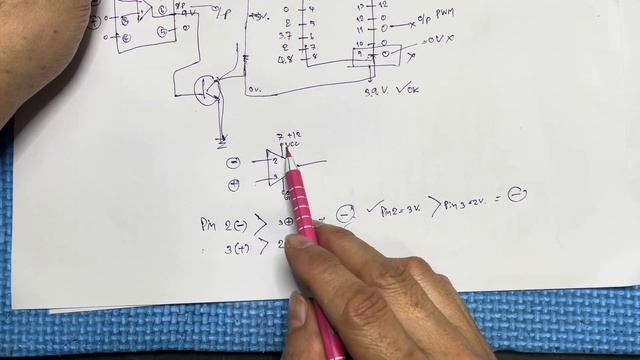 O/P
9V
O/P
+9V.
0 4
2 5
3.7 6
2 7
4.8 8
13 12
12 0
11 0 O/P PWM
10 0
9 0 0V X
3.9V. ✓OK
0V.
7 +12
VCC
⊖ 2
⊕ 3
Pin 2(-) > 3⊕ ⊖ ✓Pin2=3V. > Pin3=2V. = ⊖
3(+) > 2